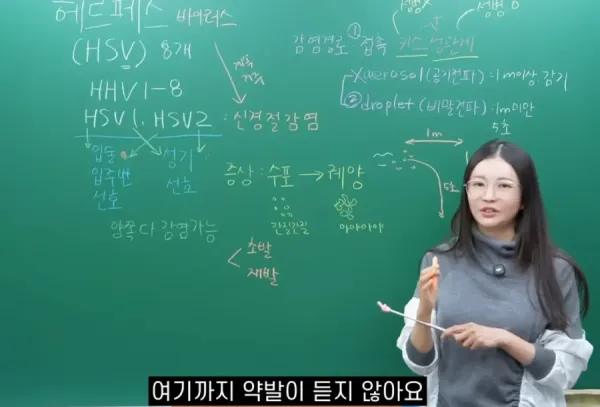 헤르페스 바이러스
(HSV) 8개
HHV 1-8
HSV1, HSV2 : 신경절감염
입술
입주변
선호
성기
선호
양쪽 다 감염가능
감염경로 ① 접촉 키스 성관계
성병X
성병O
X aerosol (공기전파) : 1m이상, 감기
② droplet (비말전파) : 1m미만
5초
1m
5초
증상 : 수포 → 궤양
간질간질
아야아야
< 초발
재발
여기까지 약발이 듣지 않아요